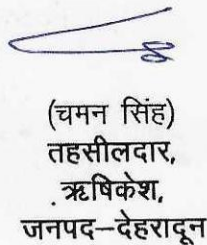 (चमन सिंह)
तहसीलदार,
ऋषिकेश,
जनपद–देहरादून